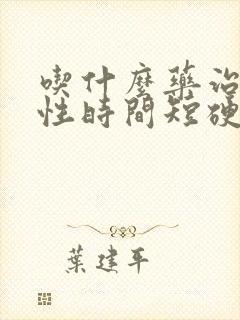 喫什麼藥治
性時間短硬
葉建平